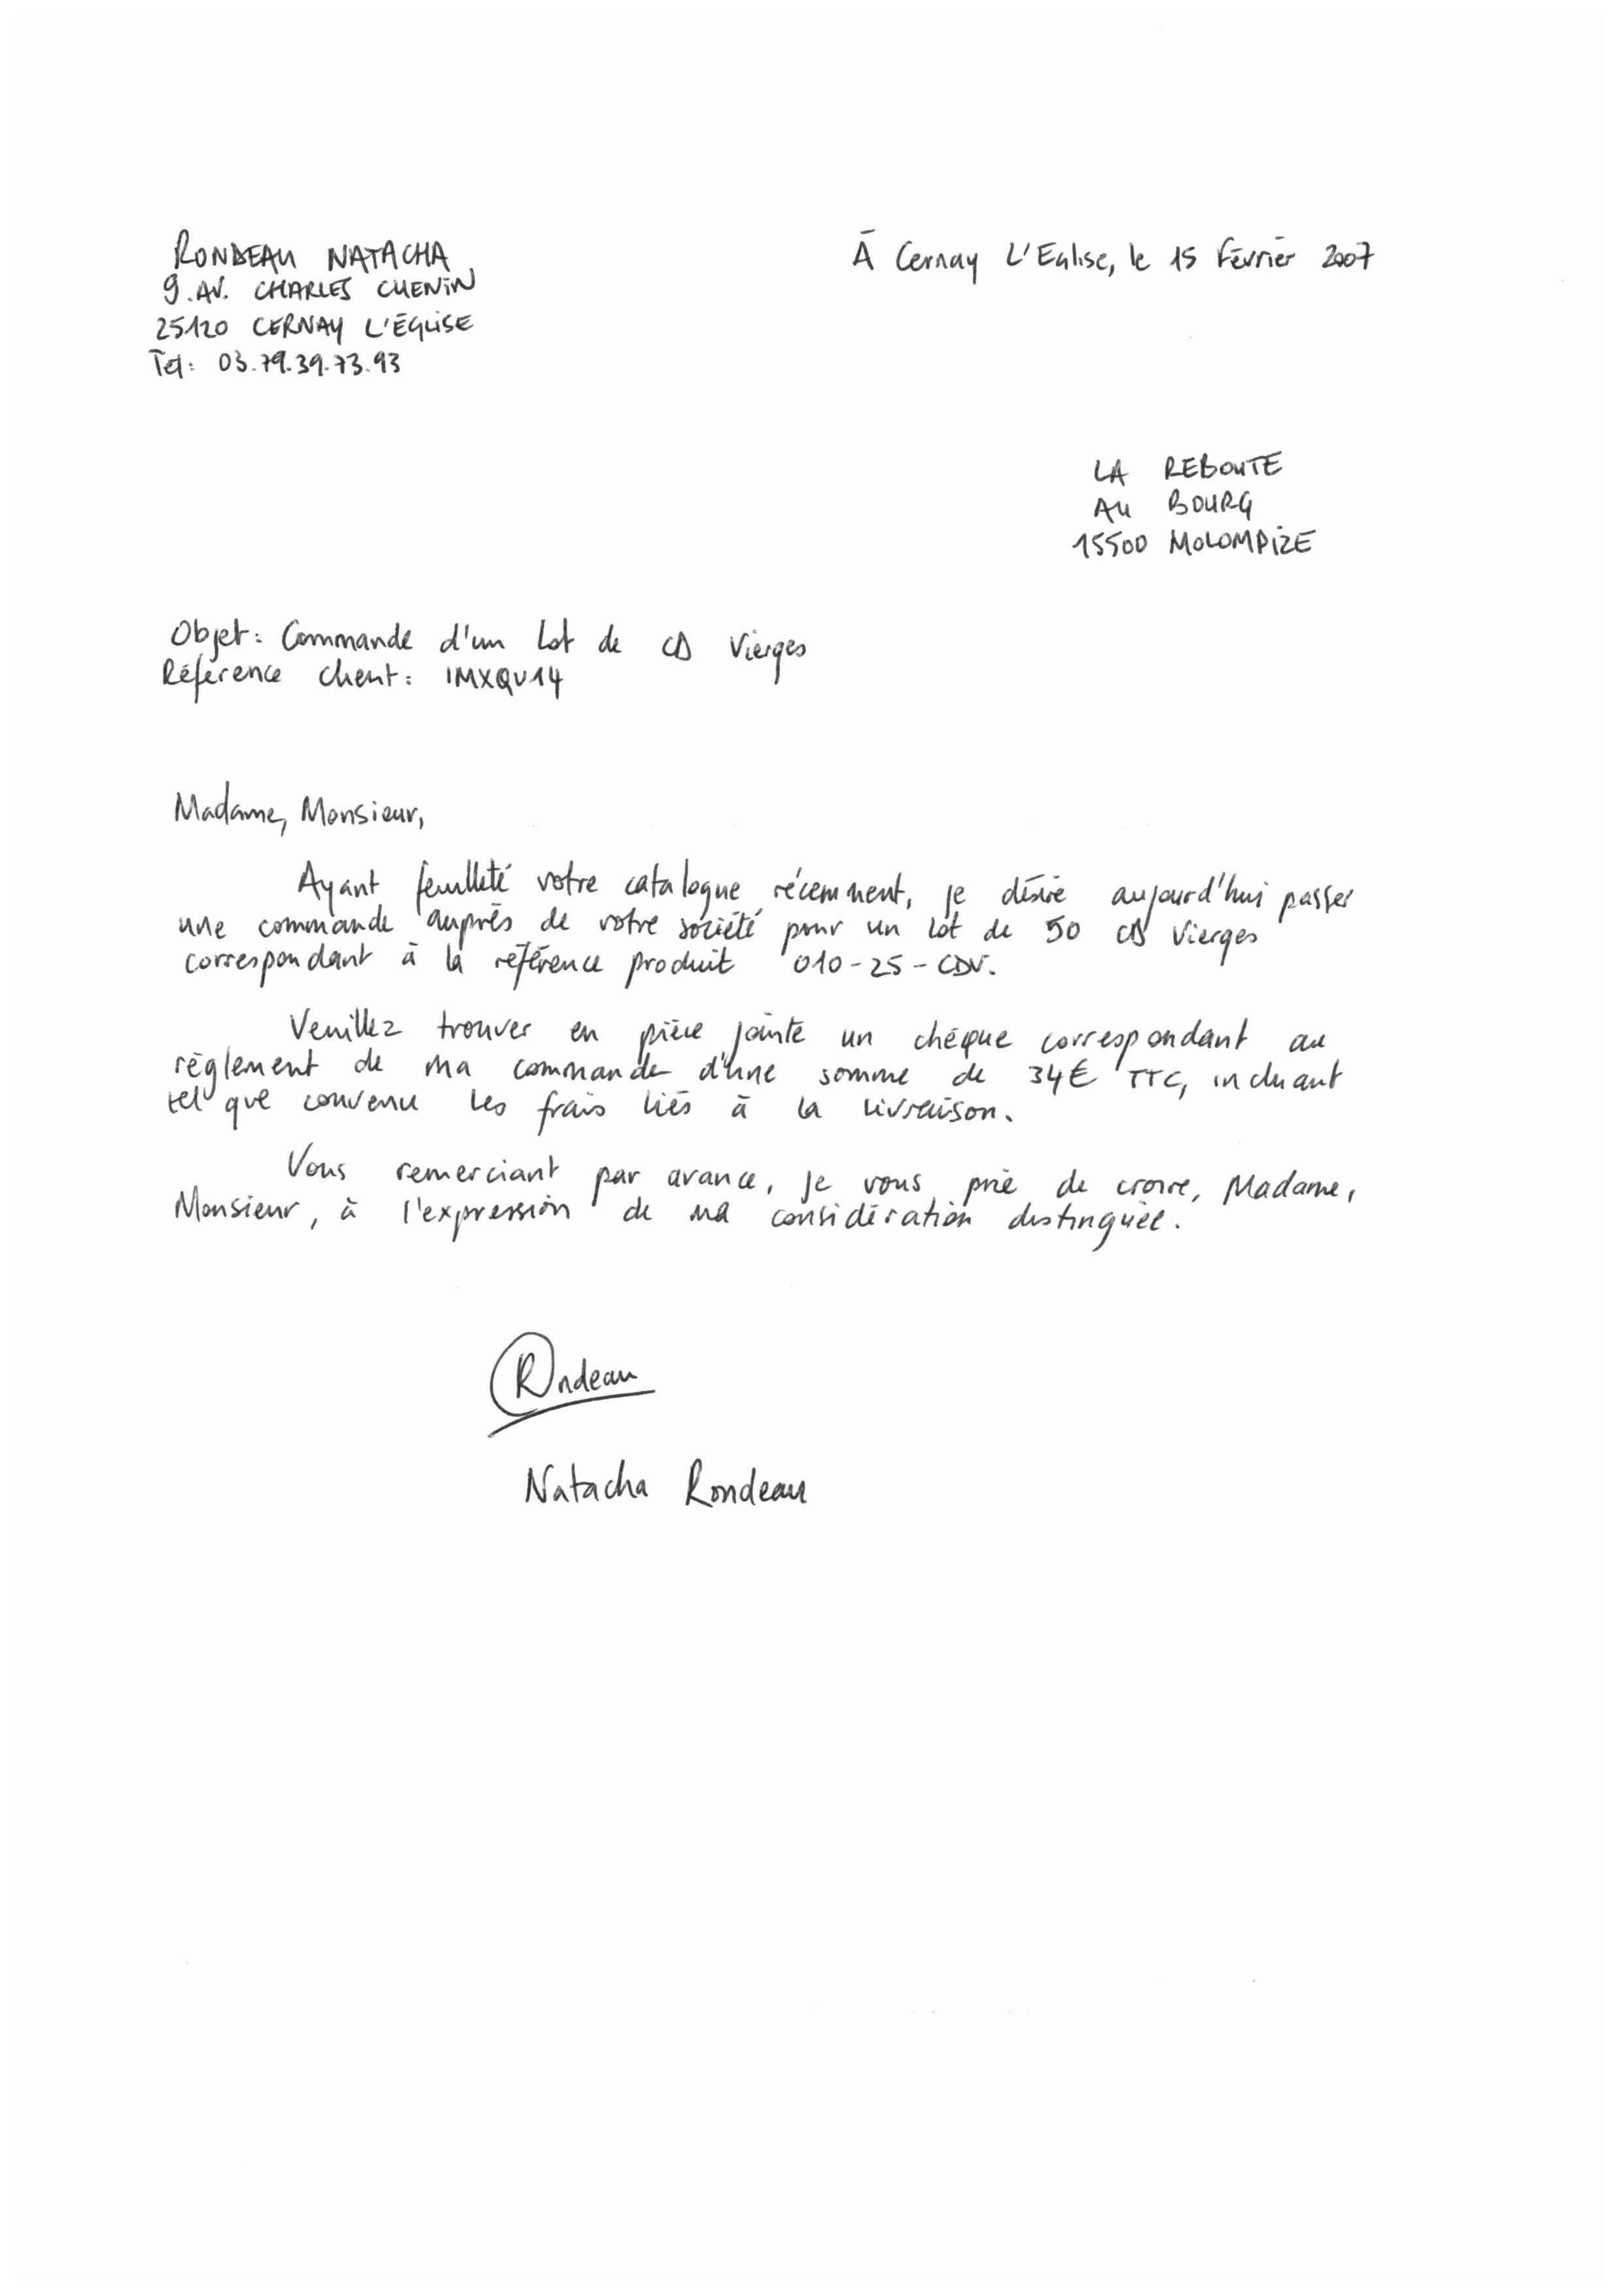 RONDEAU NATACHA
9. AV. CHARLES CUENIN
25120 CERNAY L'ÉGLISE
Tel: 03.79.39.73.93
À Cernay L'Eglise, le 15 Février 2007
LA REBOUTE
AU BOURG
15500 MOLOMPIZE
Objet: Commande d'un lot de CD Vierges
Référence client: IMXQV14
Madame, Monsieur,
Ayant feuilleté votre catalogue récemment, je désire aujourd'hui passer
une commande auprès de votre société pour un lot de 50 CD Vierges
correspondant à la référence produit 010-25-CDV.
Veuillez trouver en pièce jointe un chèque correspondant au
règlement de ma commande d'une somme de 34€ TTC, incluant
tel que convenu les frais liés à la livraison.
Vous remerciant par avance, je vous prie de croire, Madame,
Monsieur, à l'expression de ma considération distinguée.
Rondeau
Natacha Rondeau